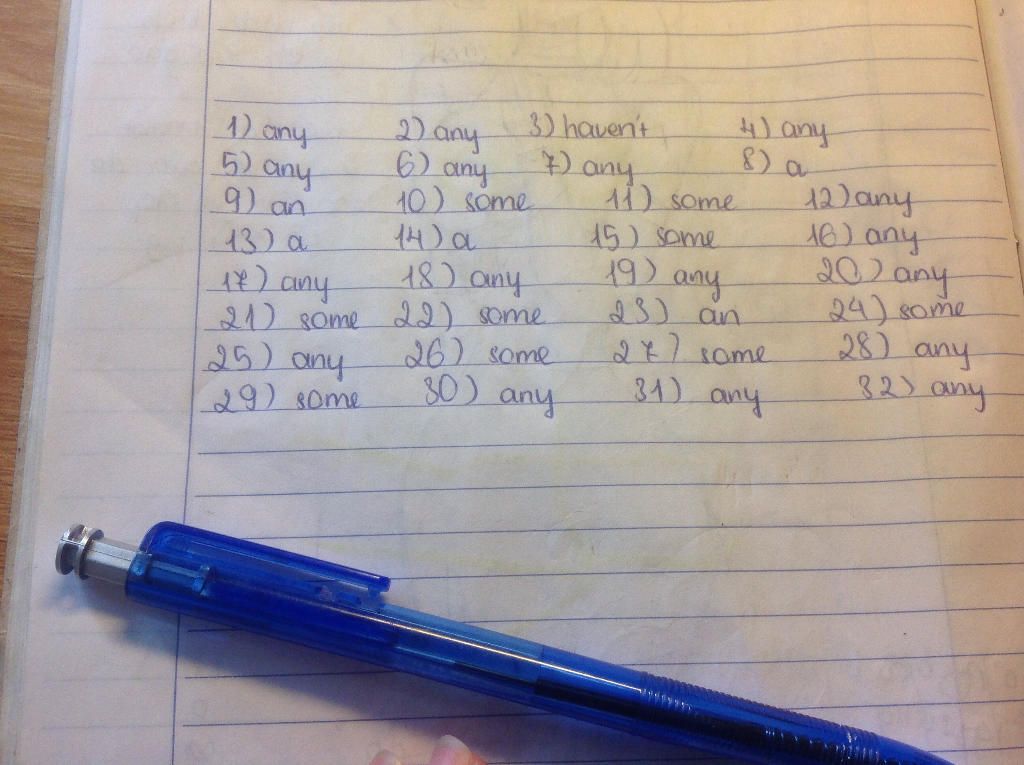 1) any 2) any 3) haven't 4) any
5) any 6) any 7) any 8) a
9) an 10) some 11) some 12) any
13) a 14) a 15) some 16) any
17) any 18) any 19) any 20) any
21) some 22) some 23) an 24) some
25) any 26) some 27) some 28) any
29) some 30) any 31) any 32) any